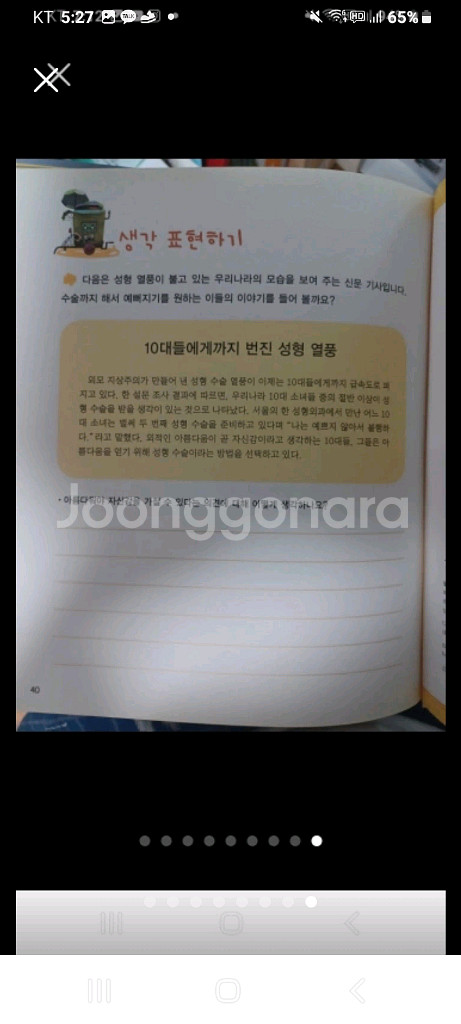 KT 5:27 65%
생각 표현하기
다음은 성형 열풍이 불고 있는 우리나라의 모습을 보여 주는 신문 기사입니다.
수술까지 해서 예뻐지기를 원하는 이들의 이야기를 들어 볼까요?
10대들에게까지 번진 성형 열풍
외모 지상주의가 만들어 낸 성형 수술 열풍이 이제는 10대들에게까지 급속도로 퍼
지고 있다. 한 설문 조사 결과에 따르면, 우리나라 10대 소녀들 중의 절반 이상이 성
형 수술을 받을 생각이 있는 것으로 나타났다. 서울의 한 성형외과에서 만난 어느 10
대 소녀는 벌써 두 번째 성형 수술을 준비하고 있다며 "나는 예쁘지 않아서 불행하
다."라고 말했다. 외적인 아름다움이 곧 자신감이라고 생각하는 10대들, 그들은 아
름다움을 얻기 위해 성형 수술이라는 방법을 선택하고 있다.
• 아름다워야 자신감을 가질 수 있다는 의견에 대해 어떻게 생각하나요?
Joonggonara
40